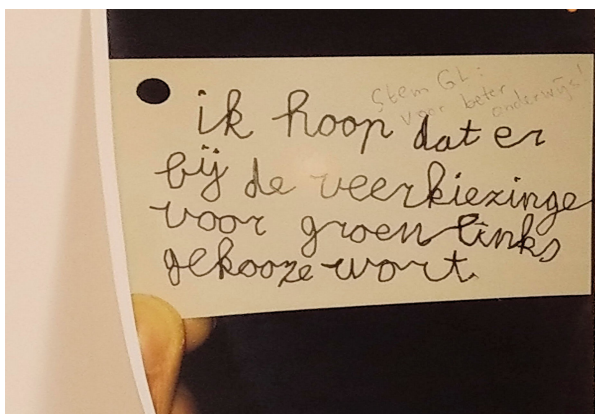 Stem GL:
voor beter
onderwijs!
ik hoop dat er
bij de veerkiezinge
voor groen links
gekooze wort